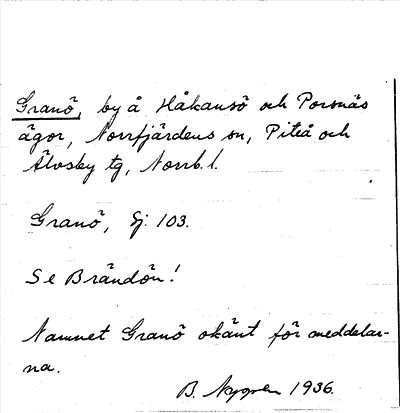 Granö, by å Håkansö och Porsnäs
ägor, Norrfjärdens sn, Piteå och
Älvsby tg, Norrb. l.
Granö, Gj: 103.
Se Brändön!
Namnet Granö okänt för meddelar-
na.
B. Nygren 1936.